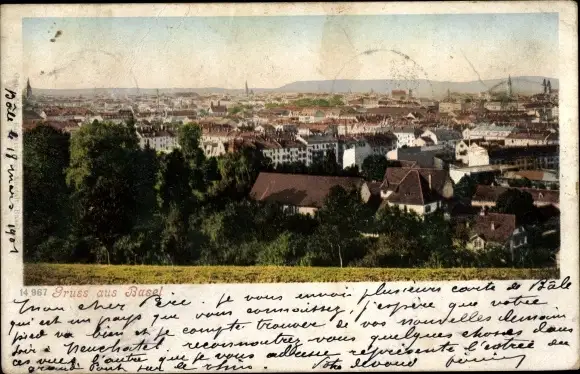 Bâle le 18 mars 1901
14 967 Gruss aus Basel
Mon cher Eric. je vous envoi plusieurs carte de Bâle,
qui est un pays que vous connaissez, j'espère que votre
pied va bien et je compte trouver de vos nouvelles demain
soir à Neuchatel, reconnaitrez vous quelques choses dans
ces vues l'autre que je vous adresse représente l'entrée du
grand Pont sur le Rhin. Votre dévoué